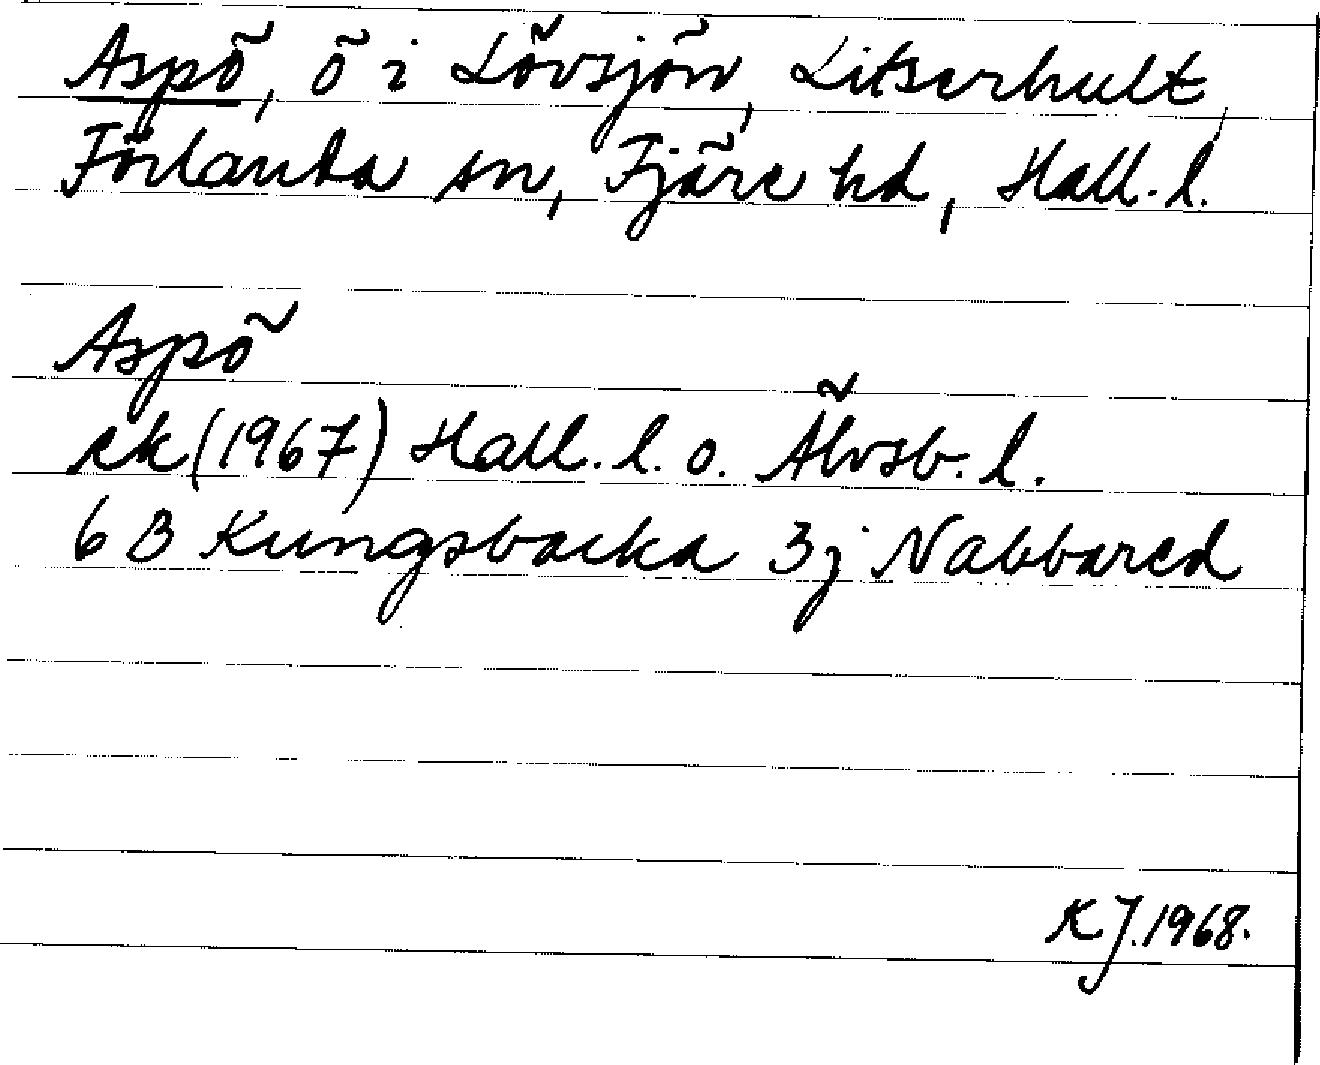 Aspö, ö i Lövsjön, Litserhult,
Förlanda sn, Fjäre hd, Hall. l.
Aspö
ek (1967) Hall. l. o. Älvsb. l.
6 B Kungsbacka 3j Nabbared
KJ. 1968.